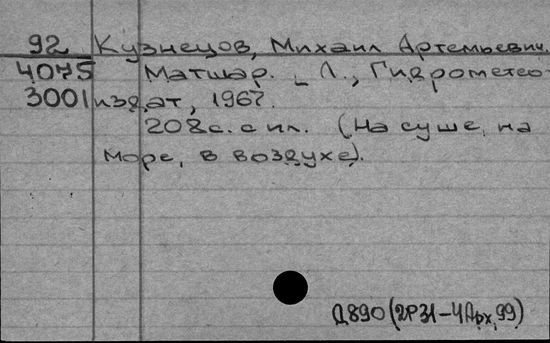 92 Кузнецов, Михаил Артемьевич.
4075 Матшар. _ Л., Гидрометео-
3001 издат, 1967.
208с. с ил. (На суше, на
море, в воздухе).
Д890 (2Р31-4Арх,99)